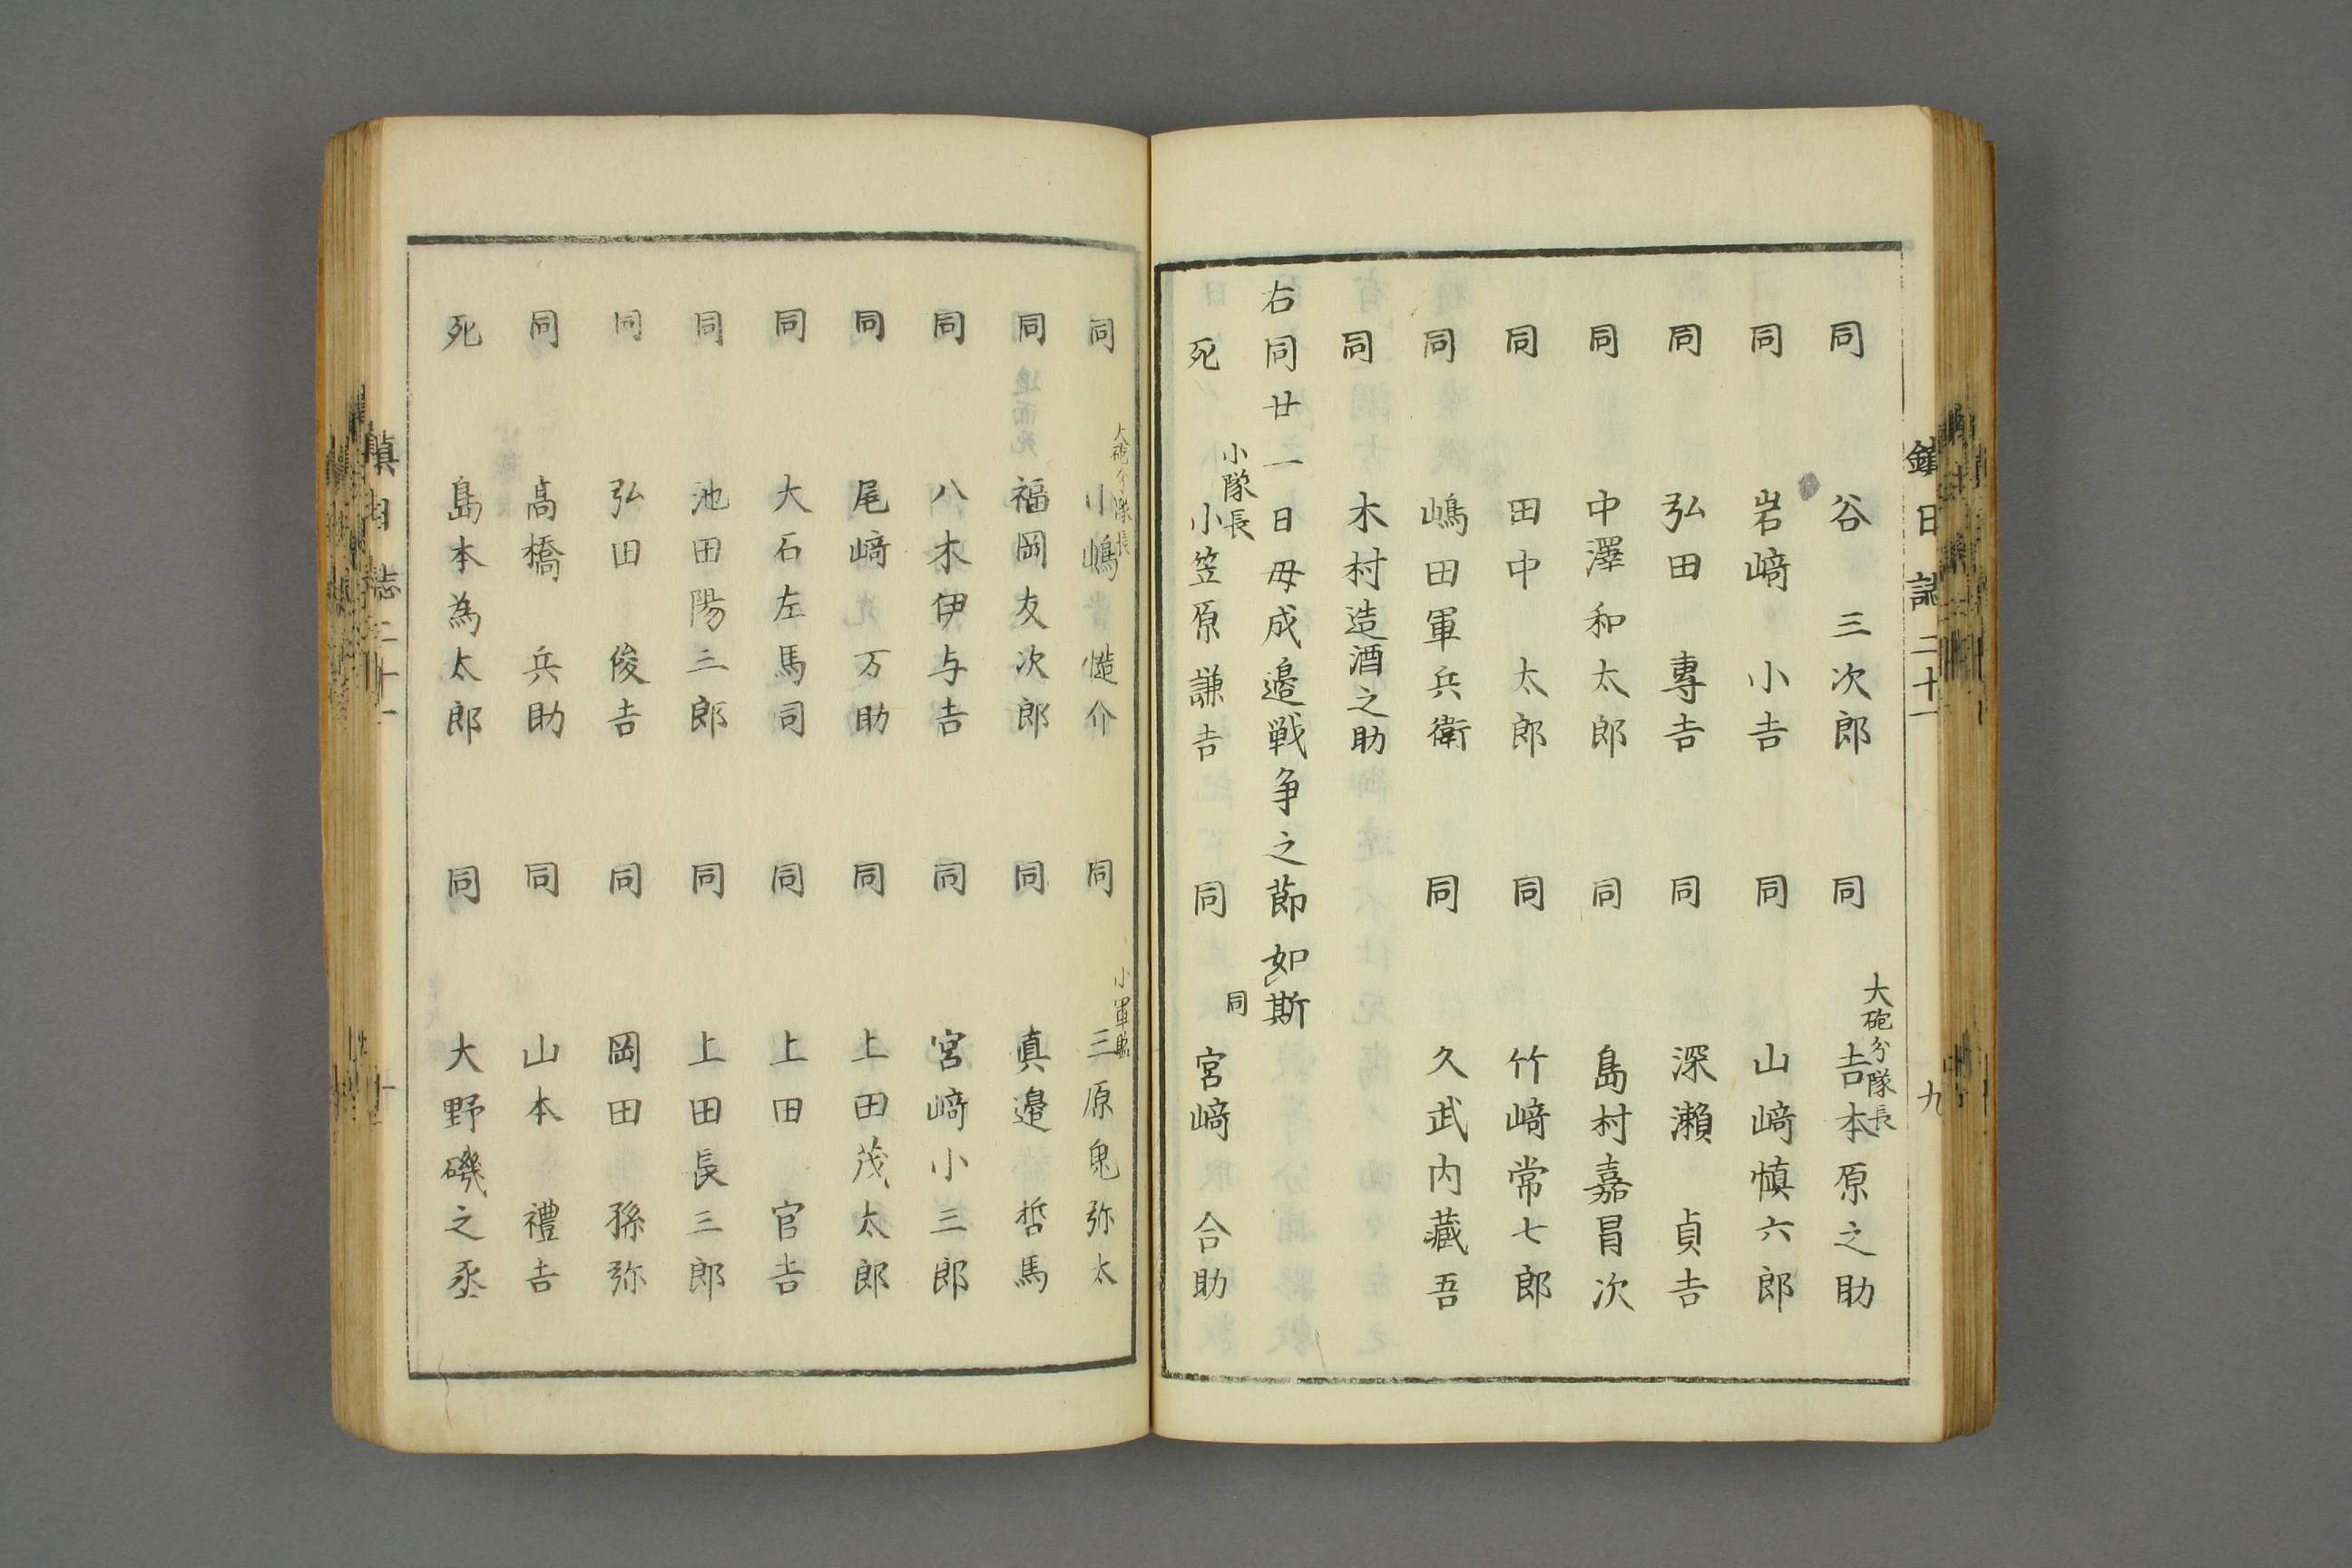 鎮日誌二十一 九
同 谷 三次郎 同 大砲分隊長 吉本原之助
同 岩﨑 小吉 同 山﨑慎六郎
同 弘田 專吉 同 深瀬 貞吉
同 中澤和太郎 同 島村嘉冒次
同 田中 太郎 同 竹﨑常七郎
同 嶋田軍兵衛 同 久武内藏吾
同 木村造酒之助
右同廿一日母成邉戦争之節如斯
死 小隊長 小笠原謙吉 同 同 宮﨑 合助
同 大砲分隊長 小嶋 慥介 同 小軍監 三原兎弥太
同 福岡友次郎 同 真邉 哲馬
同 八木伊与吉 同 宮﨑小三郎
同 尾﨑 万助 同 上田茂太郎
同 大石左馬司 同 上田 官吉
同 池田陽三郎 同 上田長三郎
同 弘田 俊吉 同 岡田 孫弥
同 髙橋 兵助 同 山本 禮吉
死 島本為太郎 同 大野磯之丞
鎮日誌二十一